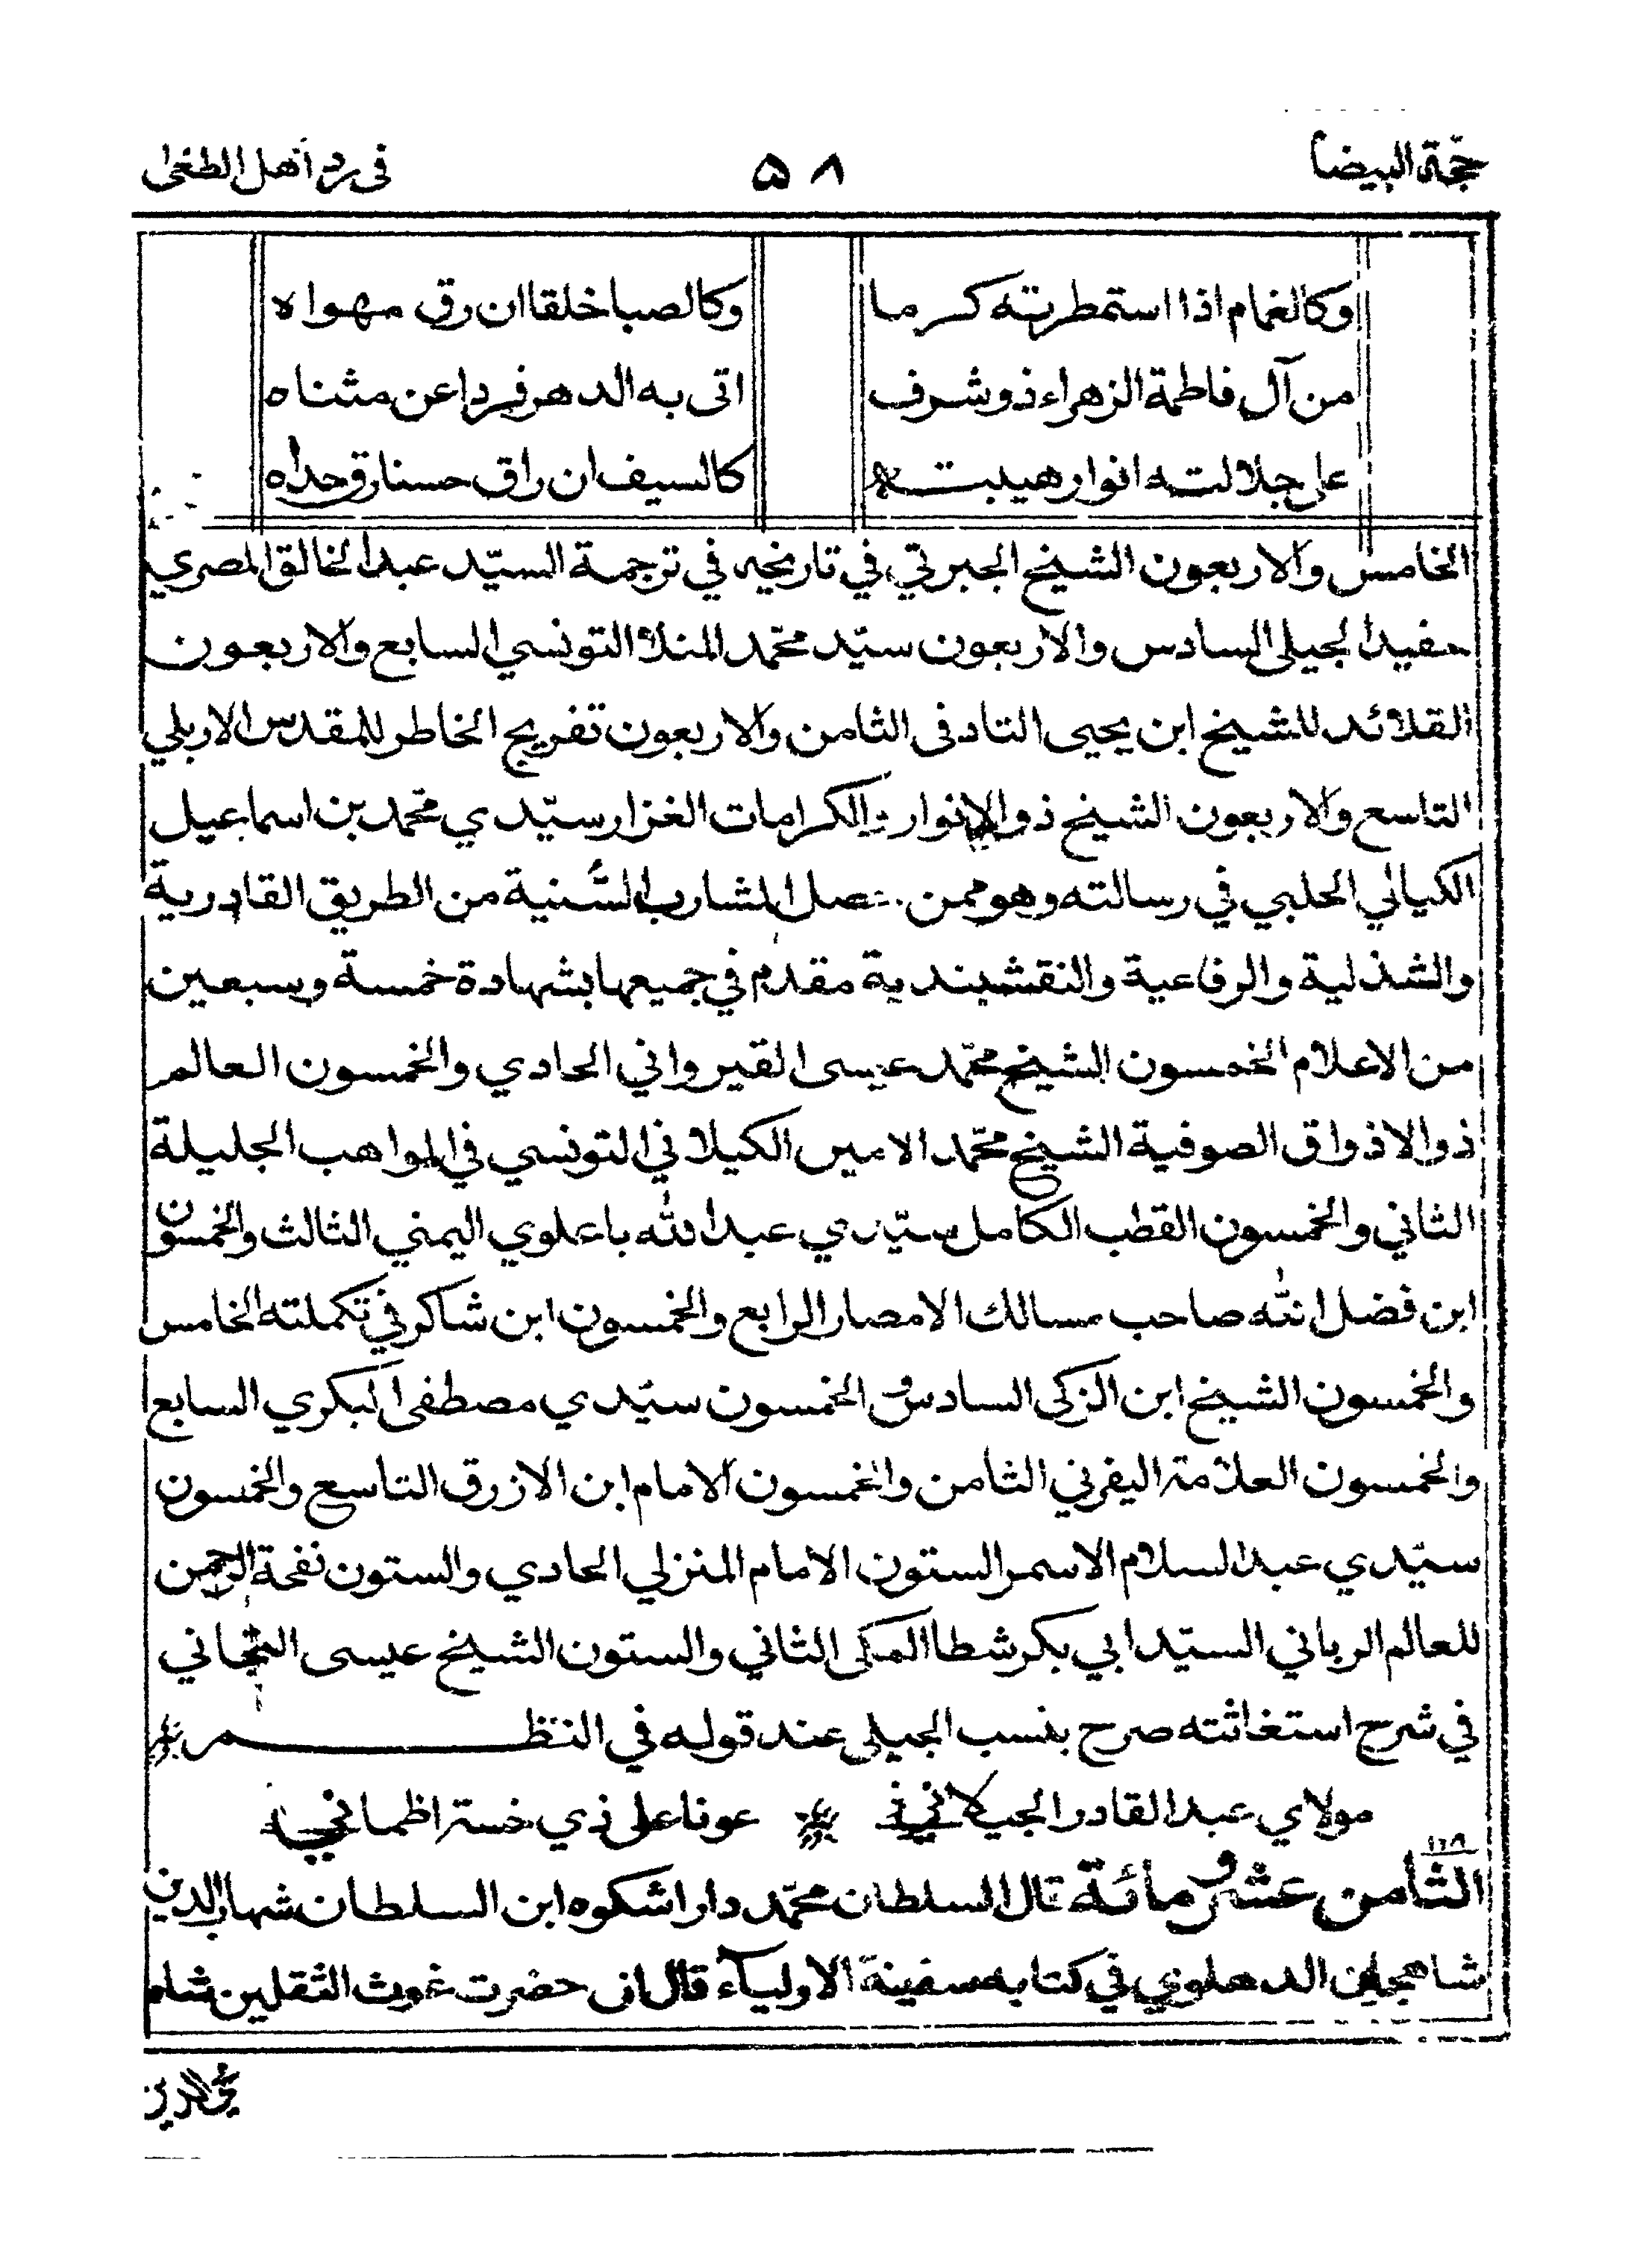 حجة البيضا ۵۸ فى رد أهل الطغى
وكالغمام اذا استمطرته كرما وكالصبا خلقا ان رق مهواه
من آل فاطمة الزهراء ذو شرف اتى به الدهر فردا عن مثناه
على جلالته انوار هيبته كالسيف ان راق حسنا رق حداه
الخامس والاربعون الشيخ الجبرتي في تاريخه في ترجمة السيّد عبد الخالق المصري
حفيد الجيلى السادس والاربعون سيّد محمّد المنلا التونسي السابع والاربعون
القلائد للشيخ ابن يحيى التادفى الثامن والاربعون تفريج الخاطر للمقدس الاربلي
التاسع والاربعون الشيخ ذو الانوار والكرامات الغزار سيّدي محمّد بن اسماعيل
الكيالي الحلبي في رسالته وهو ممن حصل المشارب السُّنية من الطريق القادرية
والشذلية والرفاعية والنقشبندية مقدم في جميعها بشهادة خمسة وسبعين
من الاعلام الخمسون الشيخ محمّد عيسى القيرواني الحادي والخمسون العالم
ذو الاذواق الصوفية الشيخ محمّد الامين الكيلاني التونسي في المواهب الجليلة
الثاني والخمسون القطب الكامل سيّدي عبد الله باعلوي اليمني الثالث والخمسون
ابن فضل الله صاحب مسالك الامصار الرابع والخمسون ابن شاكر في تكملته الخامس
والخمسون الشيخ ابن الزكى السادس والخمسون سيّدي مصطفى البكري السابع
والخمسون العلامة اليفرني الثامن والخمسون الامام ابن الازرق التاسع والخمسون
سيّدي عبد السلام الاسمر الستون الامام المنزلي الحادي والستون نفحة الرحمن
للعالم الرباني السيّد ابي بكر شطا المكى الثاني والستون الشيخ عيسى التجاني
في شرح استغاثته صرح بنسب الجيلى عند قوله في النظم
مولاي عبد القادر الجيلاني عونا على ذي خسة اظماني
١١٨
الثامن عشر ومائة قال السلطان محمّد دارا شكوه ابن السلطان شهاب الدين
شاهجان الدهلوي في كتابه سفينة الاولياء قال انى حضرت غوث الثقلين شاه
محى الدين